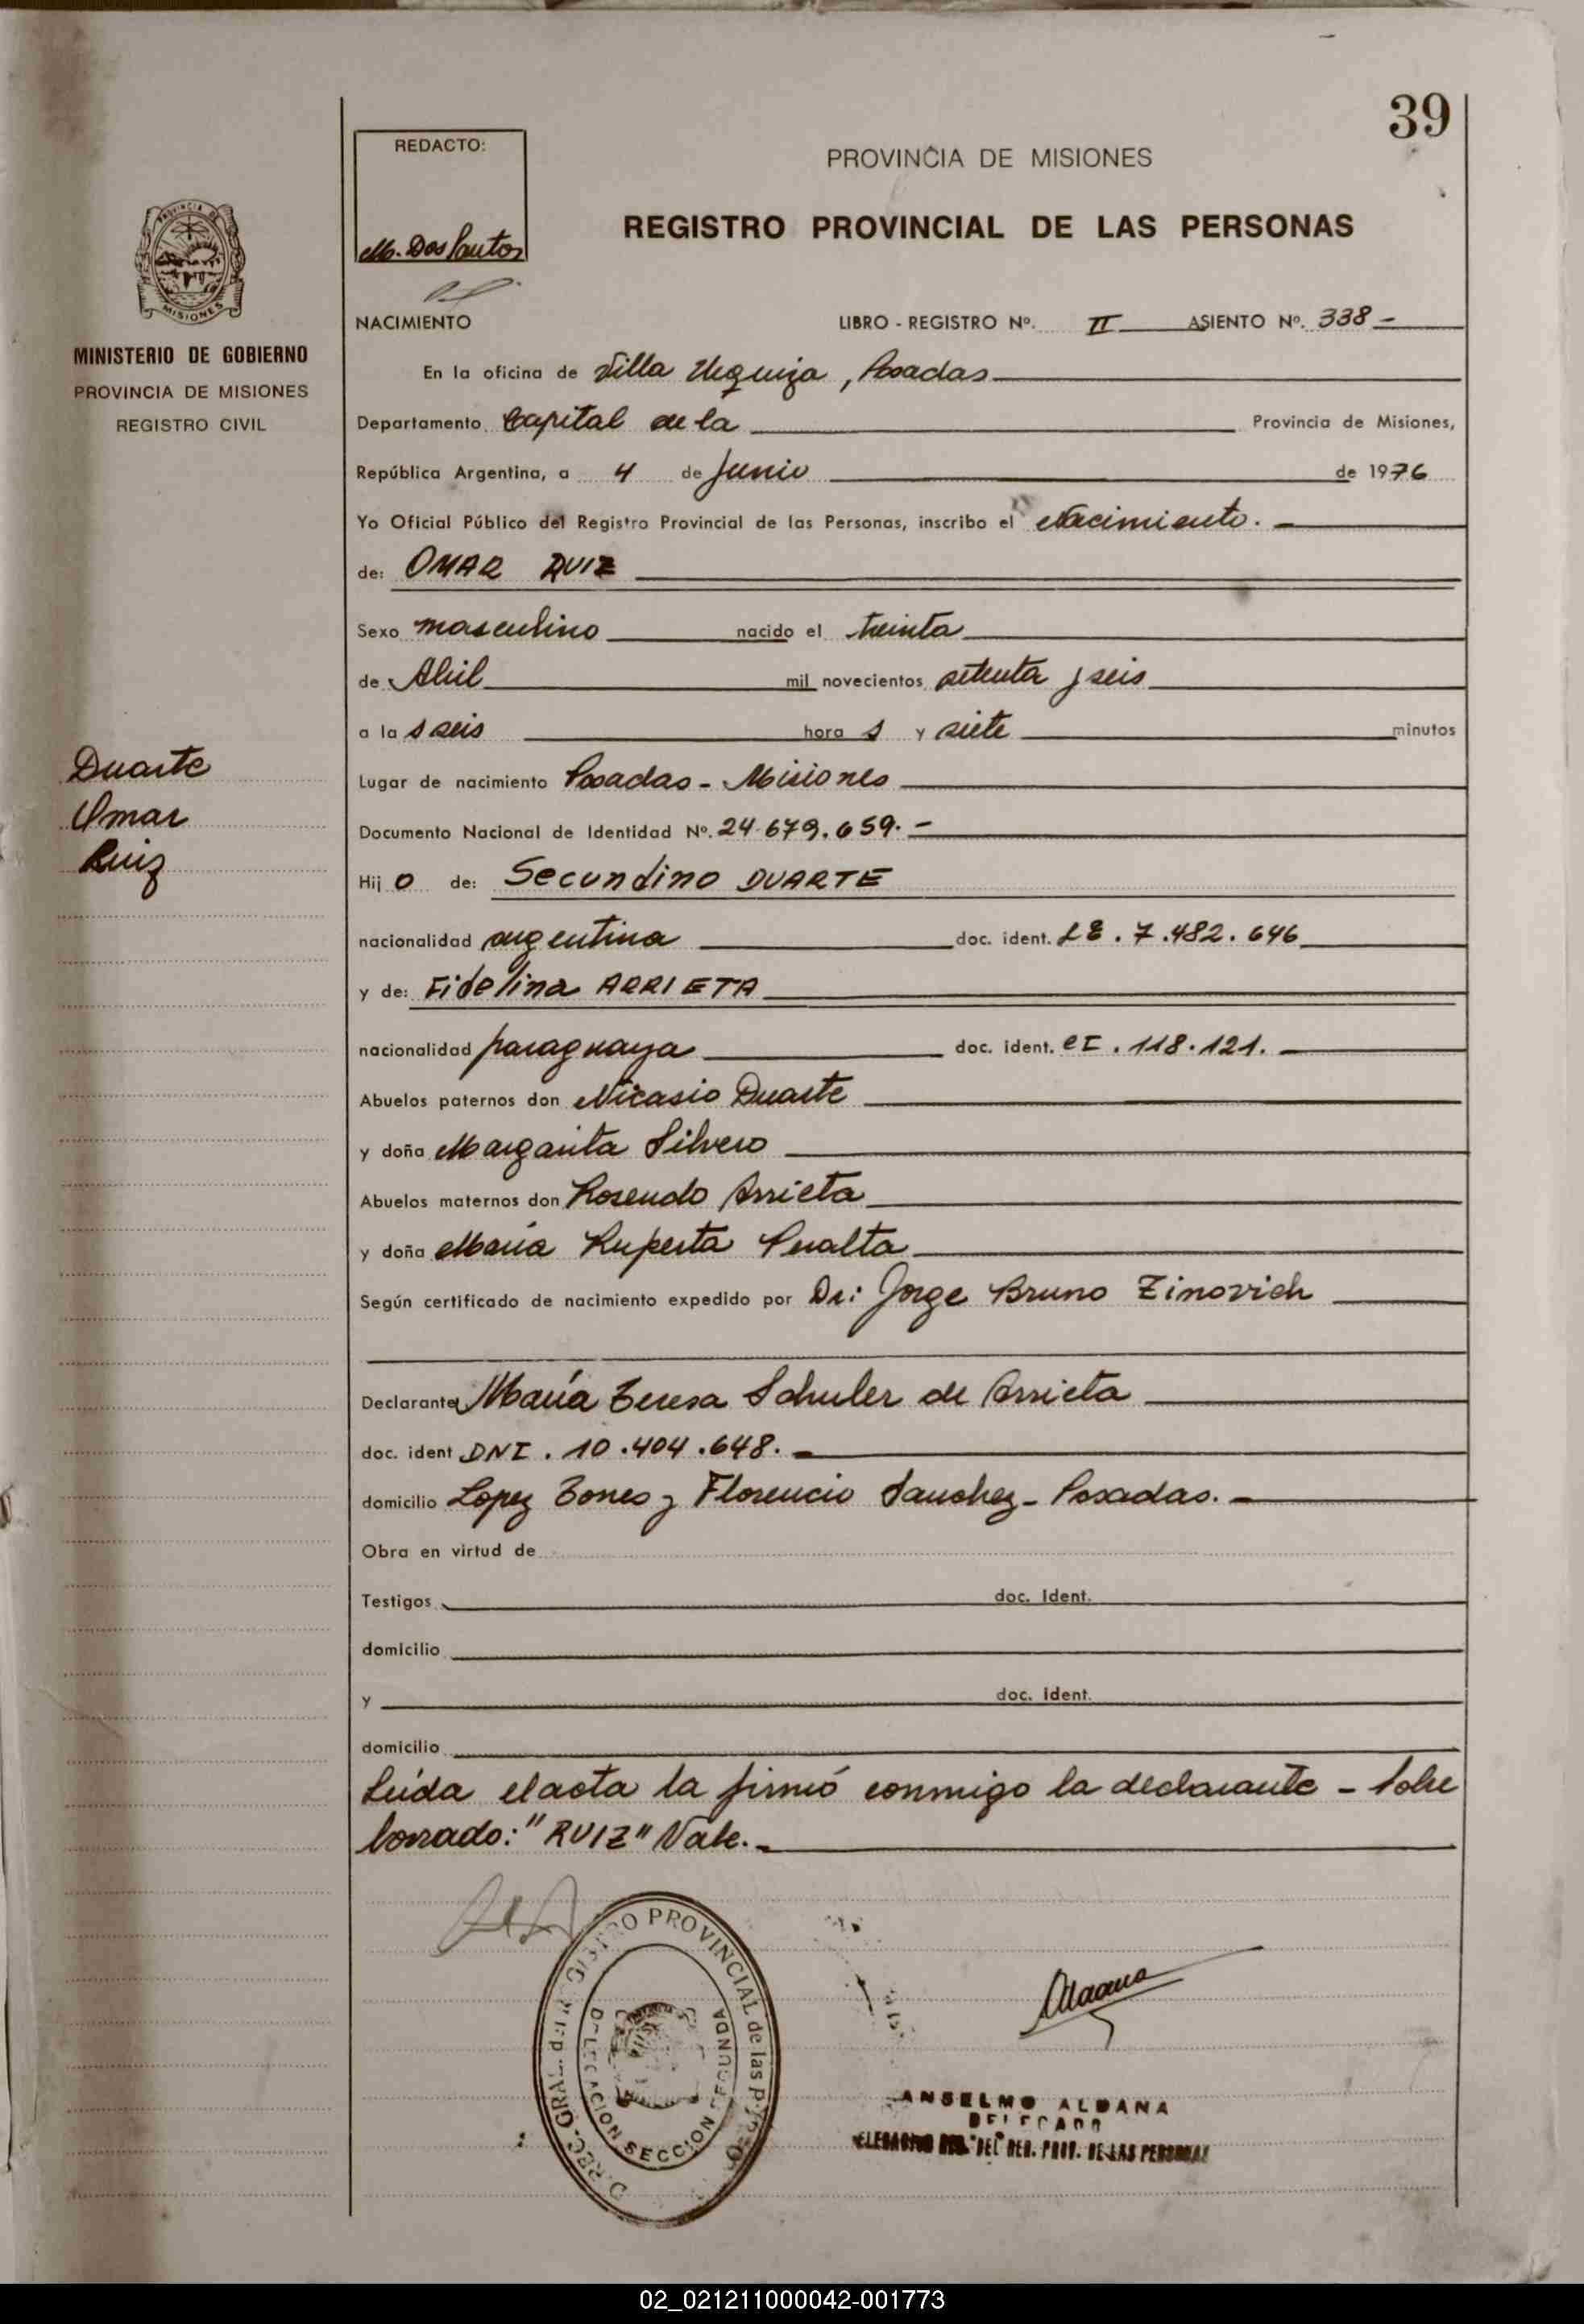 39
REDACTO:
M. Dos Santos
PROVINCIA DE MISIONES
REGISTRO PROVINCIAL DE LAS PERSONAS
PROVINCIA DE
MISIONES
MINISTERIO DE GOBIERNO
PROVINCIA DE MISIONES
REGISTRO CIVIL
NACIMIENTO LIBRO - REGISTRO Nº. II ASIENTO Nº. 338 -
En la oficina de Villa Urquiza, Posadas
Departamento Capital de la Provincia de Misiones,
República Argentina, a 4 de Junio de 1976
Yo Oficial Público del Registro Provincial de las Personas, inscribo el Nacimiento. -
de: OMAR RUIZ
Sexo masculino nacido el treinta
de Abril mil novecientos setenta y seis
a la s seis hora s y siete minutos
Duarte
Omar
Ruiz
Lugar de nacimiento Posadas - Misiones
Documento Nacional de Identidad Nº. 24.679.659. -
Hij o de: Secundino DUARTE
nacionalidad argentina doc. ident. LE. 7.482.646
y de: Fidelina ARRIETA
nacionalidad paraguaya doc. ident. CI. 118.121. -
Abuelos paternos don Nicasio Duarte
y doña Margarita Silvero
Abuelos maternos don Rosendo Arrieta
y doña María Ruperta Peralta
Según certificado de nacimiento expedido por Dr: Jorge Bruno Zinovich
Declarante María Teresa Schuler de Arrieta
doc. ident DNI. 10.404.648. -
domicilio Lopez Torres y Florencio Sanchez - Posadas. -
Obra en virtud de
Testigos doc. ident.
domicilio
y doc. ident.
domicilio
Leída el acta la firmó conmigo la declarante - Sobre
borrado: "RUIZ" Vale. -
REGISTRO PROVINCIAL de las
DELEGACION SECCION SEGUNDA
Aldana
ANSELMO ALDANA
DELEGADO
DEL REG. PROV. DE LAS PERSONAS
02_021211000042-001773